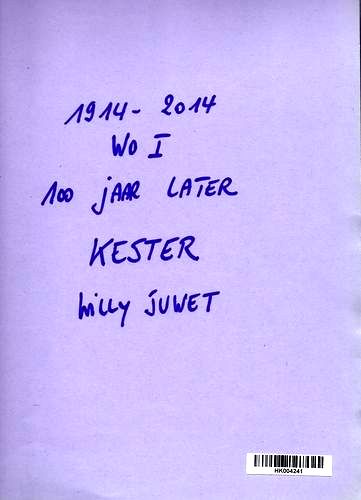 1914- 2014
WO I
100 jAAR LATER
KESTER
Willy JUWET
HK004241